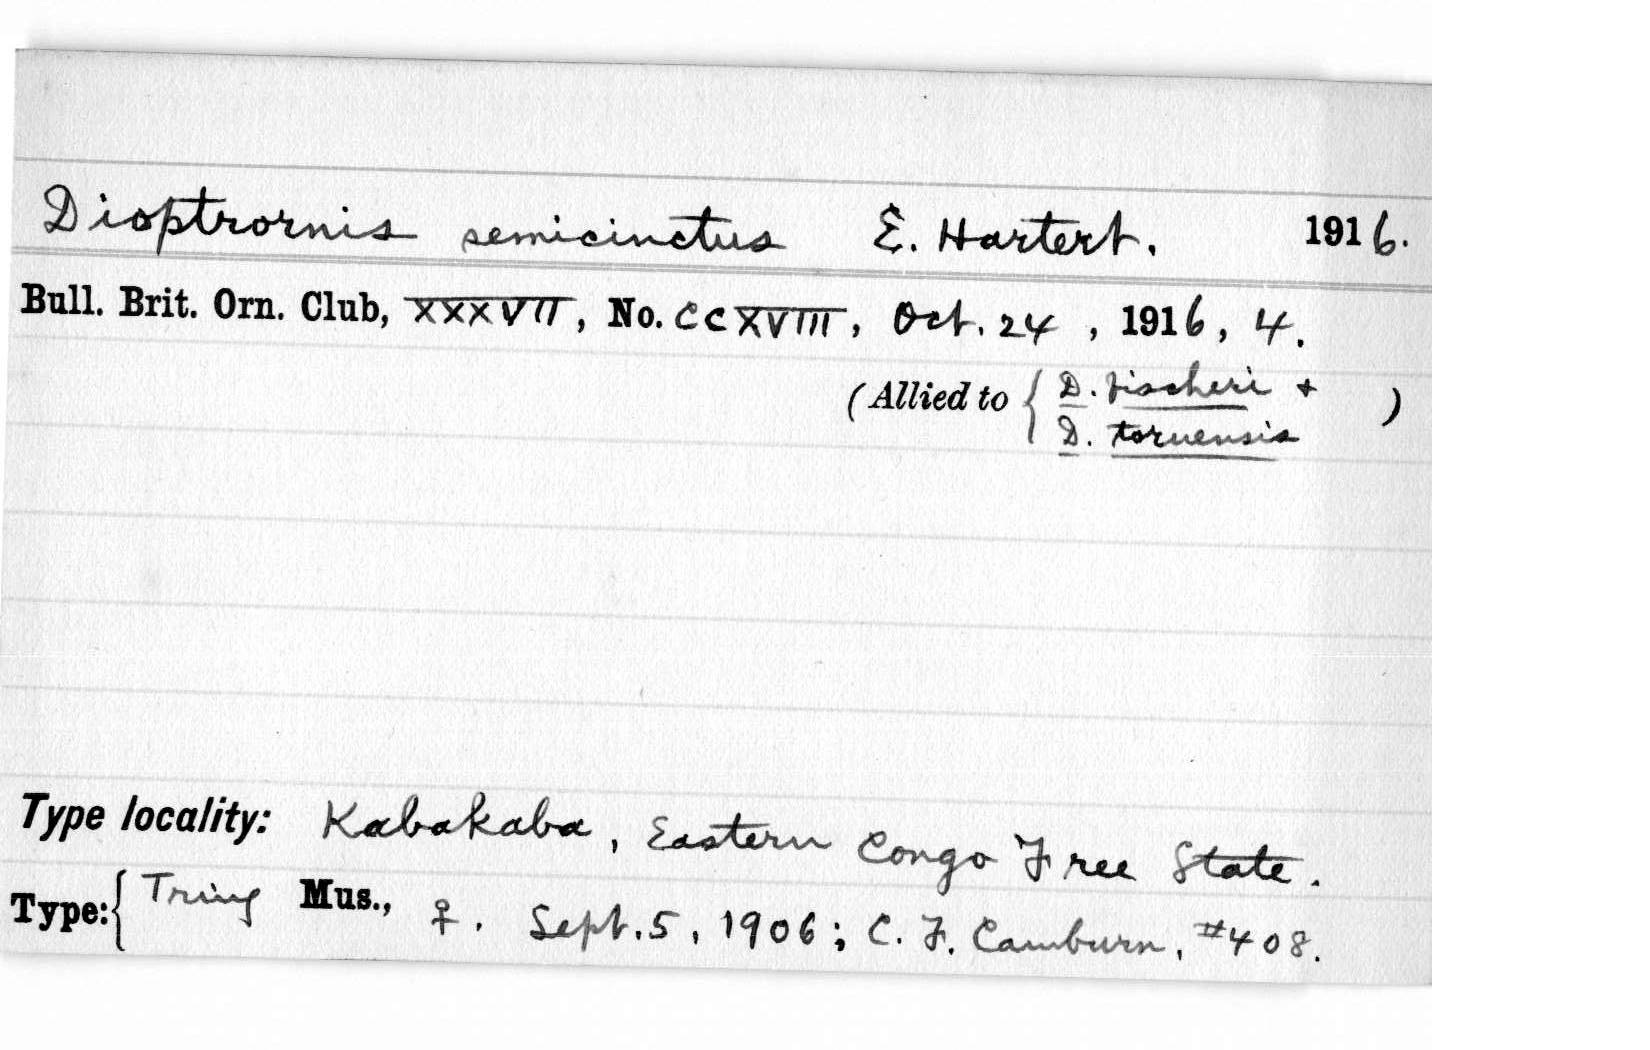 Dioptrornis semicinctus E. Hartert. 1916.
Bull. Brit. Orn. Club, XXXVII, No. CCXVIII, Oct. 24, 1916, 4.
(Allied to { D. fischeri +
D. toruensis )
Type locality: Kabakaba, Eastern Congo Free State.
Type: { Tring Mus., ♀. Sept. 5, 1906; C. F. Camburn, #408.